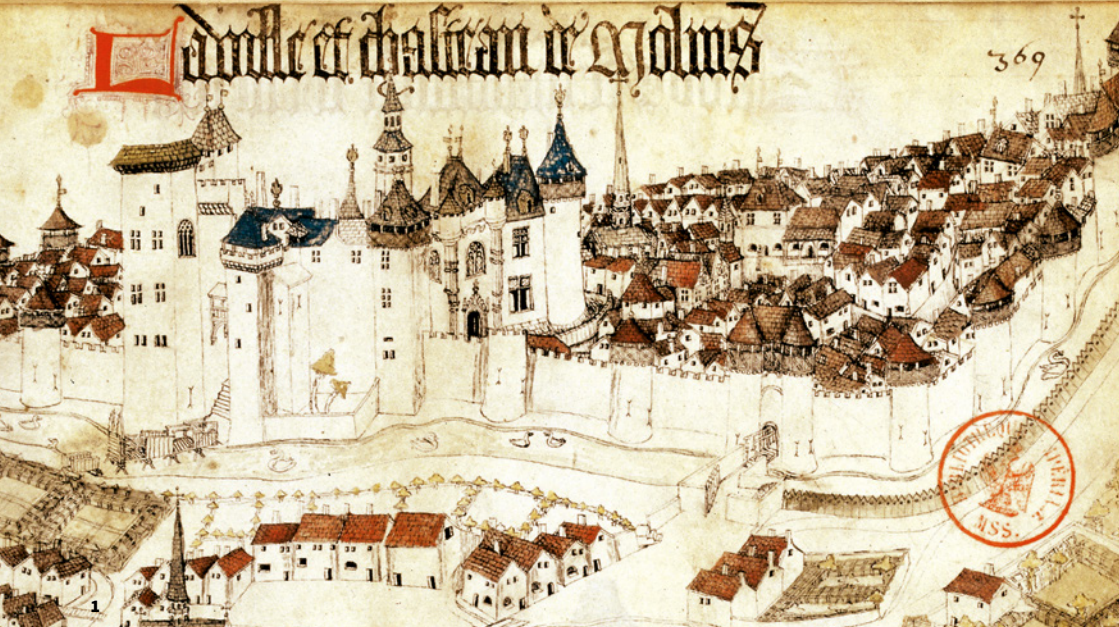 La ville et chasteau de Molins
369
BIBLIOTHEQUE IMPERIALE
MSS.
1